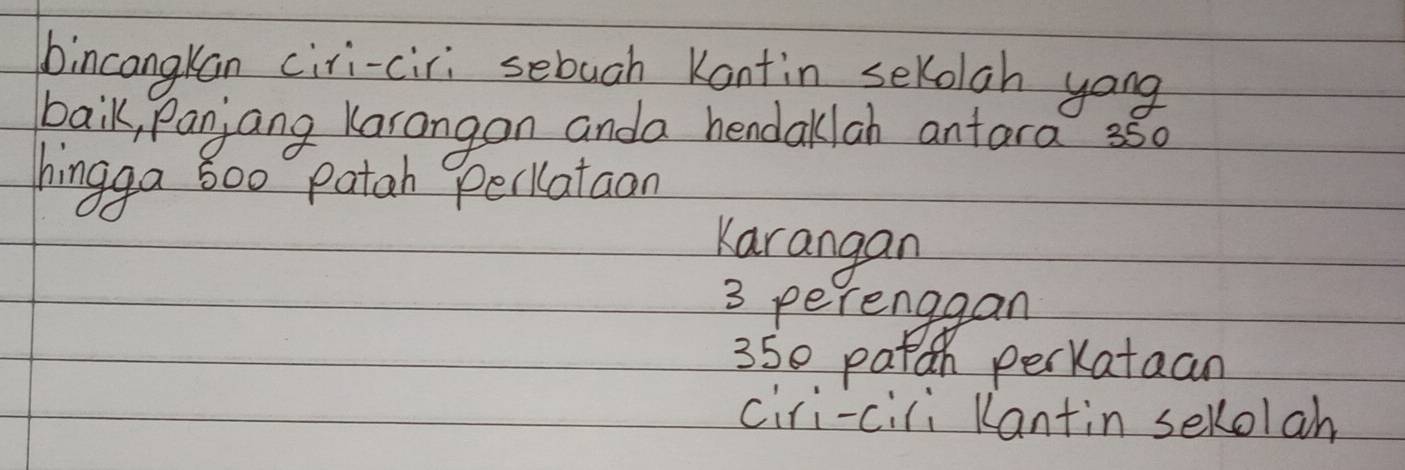 bincangkan ciri-ciri sebuah kantin sekolah yang
baik, panjang karangan anda hendaklah antara 350
hingga 500 patah perkataan
Karangan
3 perenggan
350 patah perkataan
ciri-ciri kantin sekolah